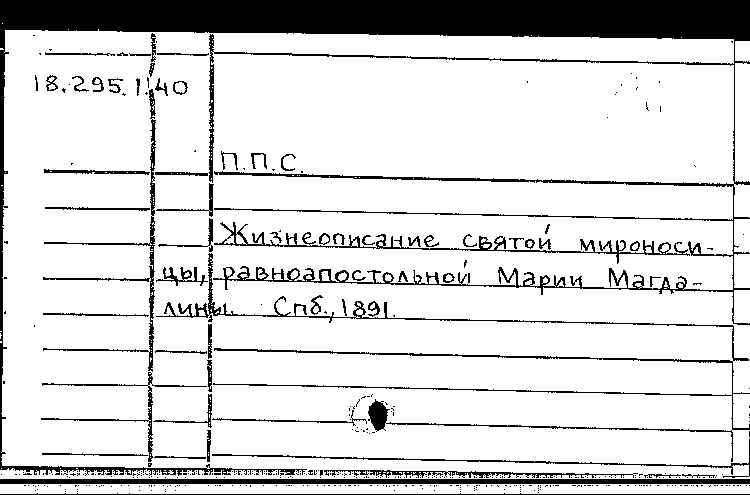 18.295.1.40
П.П.С.
Жизнеописание святой мироноси-
цы, равноапостольной Марии Магда-
лины. Спб., 1891.